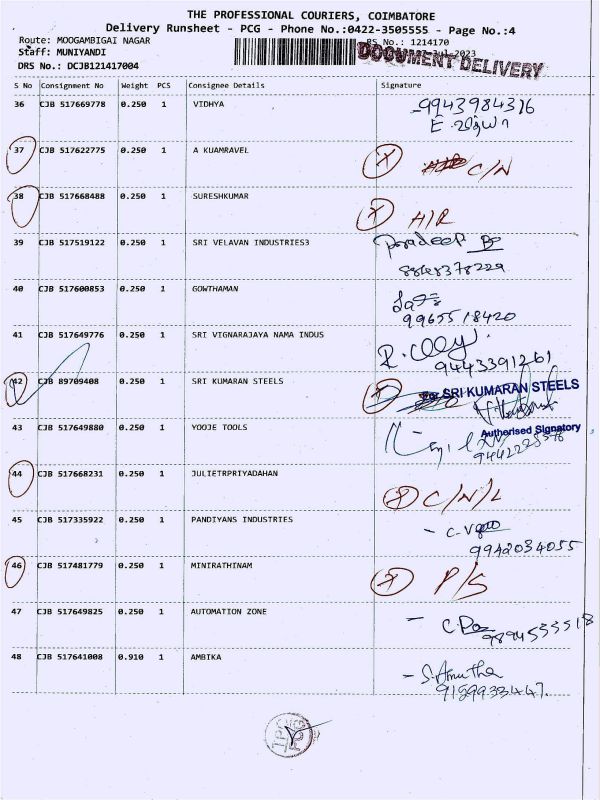 THE PROFESSIONAL COURIERS, COIMBATORE
Delivery Runsheet - PCG - Phone No.:0422-3505555 - Page No.:4
Route: MOOGAMBIGAI NAGAR RS No.: 1214170
Staff: MUNIYANDI -Jul-2023
DOCUMENT DELIVERY
DRS No.: DCJB121417004
S No Consignment No Weight PCS Consignee Details Signature
36 CJB 517669778 0.250 1 VIDHYA 9943984316
37 CJB 517622775 0.250 1 A KUAMRAVEL X C/N
38 CJB 517668488 0.250 1 SURESHKUMAR X A/R
39 CJB 517519122 0.250 1 SRI VELAVAN INDUSTRIES3 Pradeep
8848378229
40 CJB 517600853 0.250 1 GOWTHAMAN
9965518420
41 CJB 517649776 0.250 1 SRI VIGNARAJAYA NAMA INDUS
9443391261
42 CJB 89709408 0.250 1 SRI KUMARAN STEELS X For SRI KUMARAN STEELS
Authorised Signatory
43 CJB 517649880 0.250 1 YOOJE TOOLS
44 CJB 517668231 0.250 1 JULIETRPRIYADAHAN X C/N/L
45 CJB 517335922 0.250 1 PANDIYANS INDUSTRIES
9942034055
46 CJB 517481779 0.250 1 MINIRATHINAM X P/S
47 CJB 517649825 0.250 1 AUTOMATION ZONE
9894533518
48 CJB 517641008 0.910 1 AMBIKA - S. Amutha
9159933447.